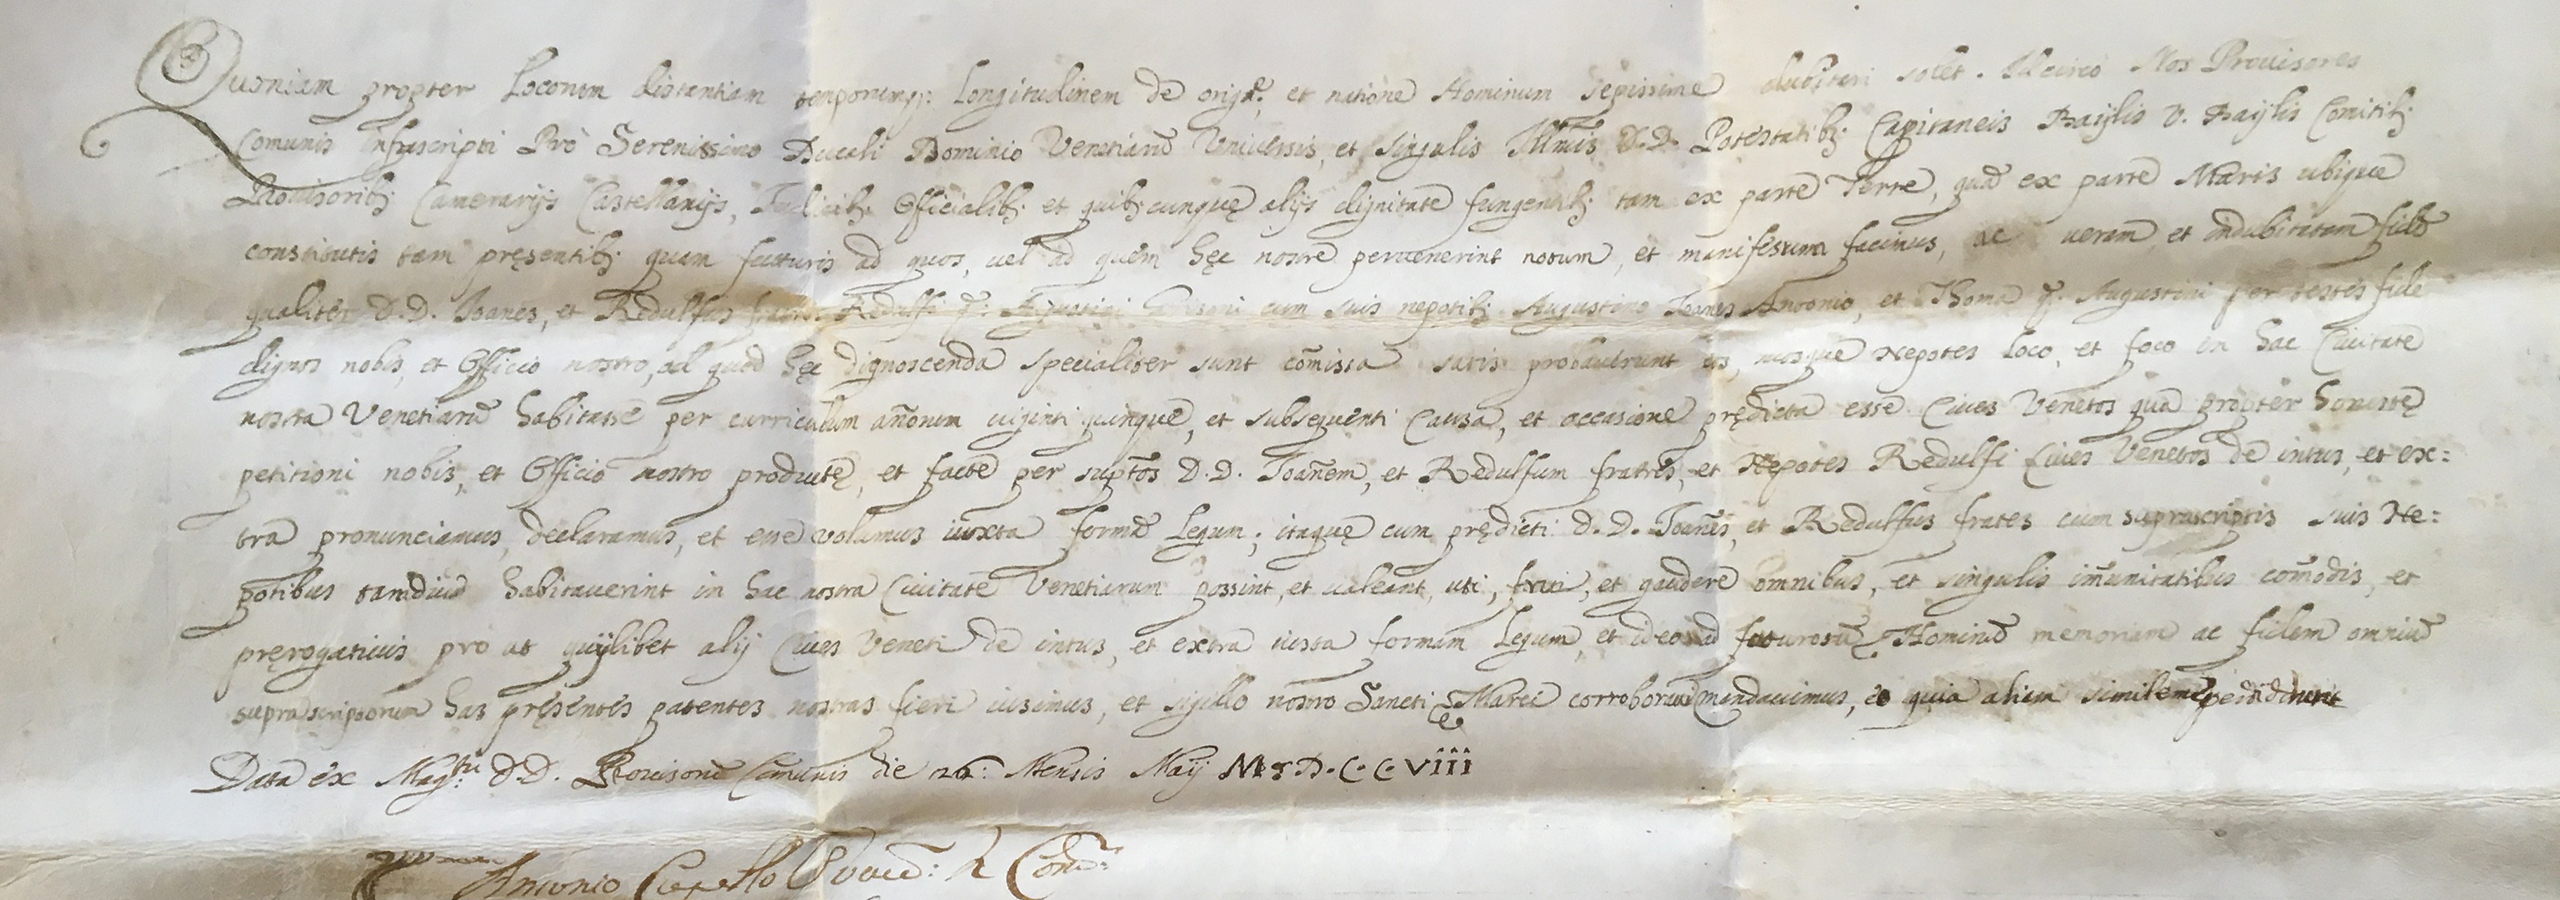 Quoniam propter Locorum distantiam temporumq; Longitudinem de orig.e et natione Hominum sepissime dubitari solet. Idcirco Nos Provisores
Comunis infrascripti Prò Serenissimo Ducali Dominio Venetiarũ Universis, et singulis Illmis D.D. Potestatib; Capitaneis Baijlis V. Baijlis Comitib;
Provisorib; Camerarijs Castellanijs, Iudicib; Officialib; et quib;cunquę alijs dignitate fungentib; tam ex parte Terre, quã ex parte Maris ubique
constitutis tam pręsentib; quam futturis ad quos, vel ad quem hęc nostre pervenerint notum, et manifestum facimus, ac veram et indubitatam fidẽ
qualiter D.D. Ioanes, et Redulfus fratres Redulfi q. Agustini cum suis nepotib; Augustino Ioanes Antonio, et Thoma q. Augustini per testes fide
dignos nobis, et Officio nostro, ad quod hęc dignoscenda specialiter sunt cõmissa satis probaverunt eos, nosque Nepotes Loco, et foco in hac Civitate
nostra Venetiarũ habitasse per curriculum añorum viginti quinque, et subsequenti Causa, et occasione prędicta esse Cives Venetos qua propter honestę
petitioni nobis, et Officio nostro productę, et facte per suptos D.D. Ioañem, et Redulfum fratres, et Nepotes Redulfi Cives Venetos de intus, et ex=
tra pronunciamus, declaramus, et esse volumus iuxta formã Legum; itaquę cum prędicti D.D. Ioanes, et Redulfus frates cum suprascriptis suis Ne=
potibus tamdiuũ habitaverint in hac nostra Civitate Venetiarum possint, et valeant, uti, frui, et gaudere omnibus, et singulis im̃unitatibus com̃odis, et
pręrogativis pro ut quijlibet alij Cives Veneti de intus, et extra iuxta formam Legum, et ideo ad futurorũ Hominũ memoriam ac fidem omniũ
suprascriptorum has pręsentes patentes nostras fieri iusimus, et sigillo nostro Sancti Marci corroborari mandavimus, eo quia aliam similem perdiderunt
Data ex Mag.tu D.D. Provisorũ Comunis die 26: Mensis Maij M.D.C.C.VIII
Antonio Capello Proved: di Com: